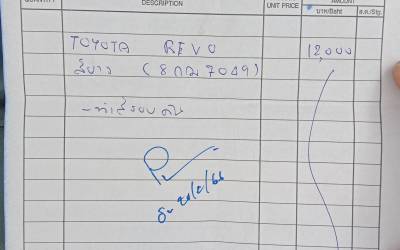 QUANTITY DESCRIPTION UNIT PRICE AMOUNT
บาท/Baht ส.ต./Stg.
TOYOTA REVO 12,000
สีขาว (8กฌ7049)
- ทำสีรอบคัน